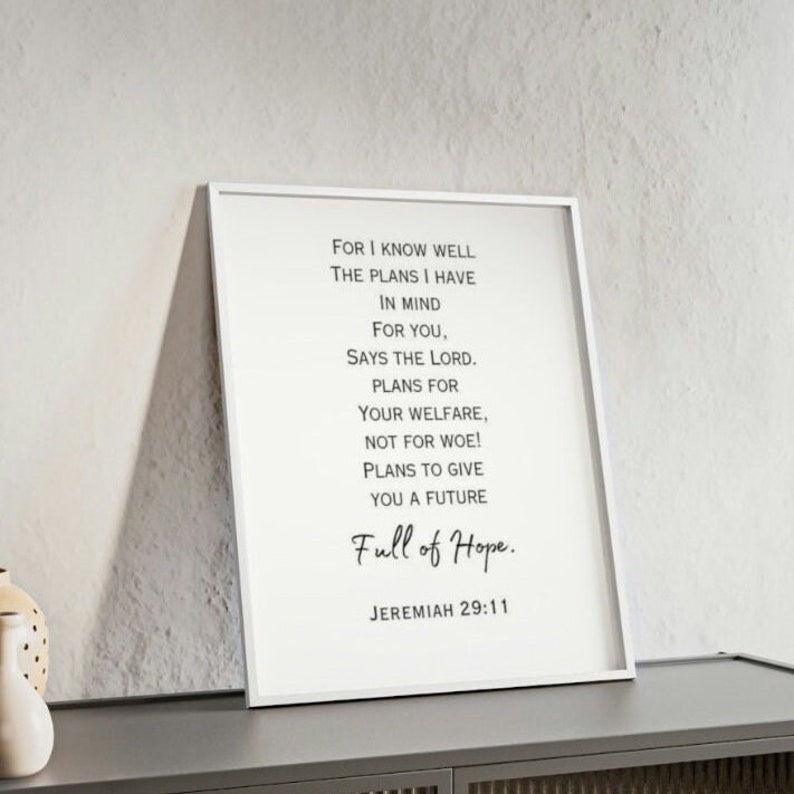 For I know well
The plans I have
In mind
For you,
Says the Lord.
plans for
Your welfare,
not for woe!
Plans to give
you a future
Full of Hope.
Jeremiah 29:11